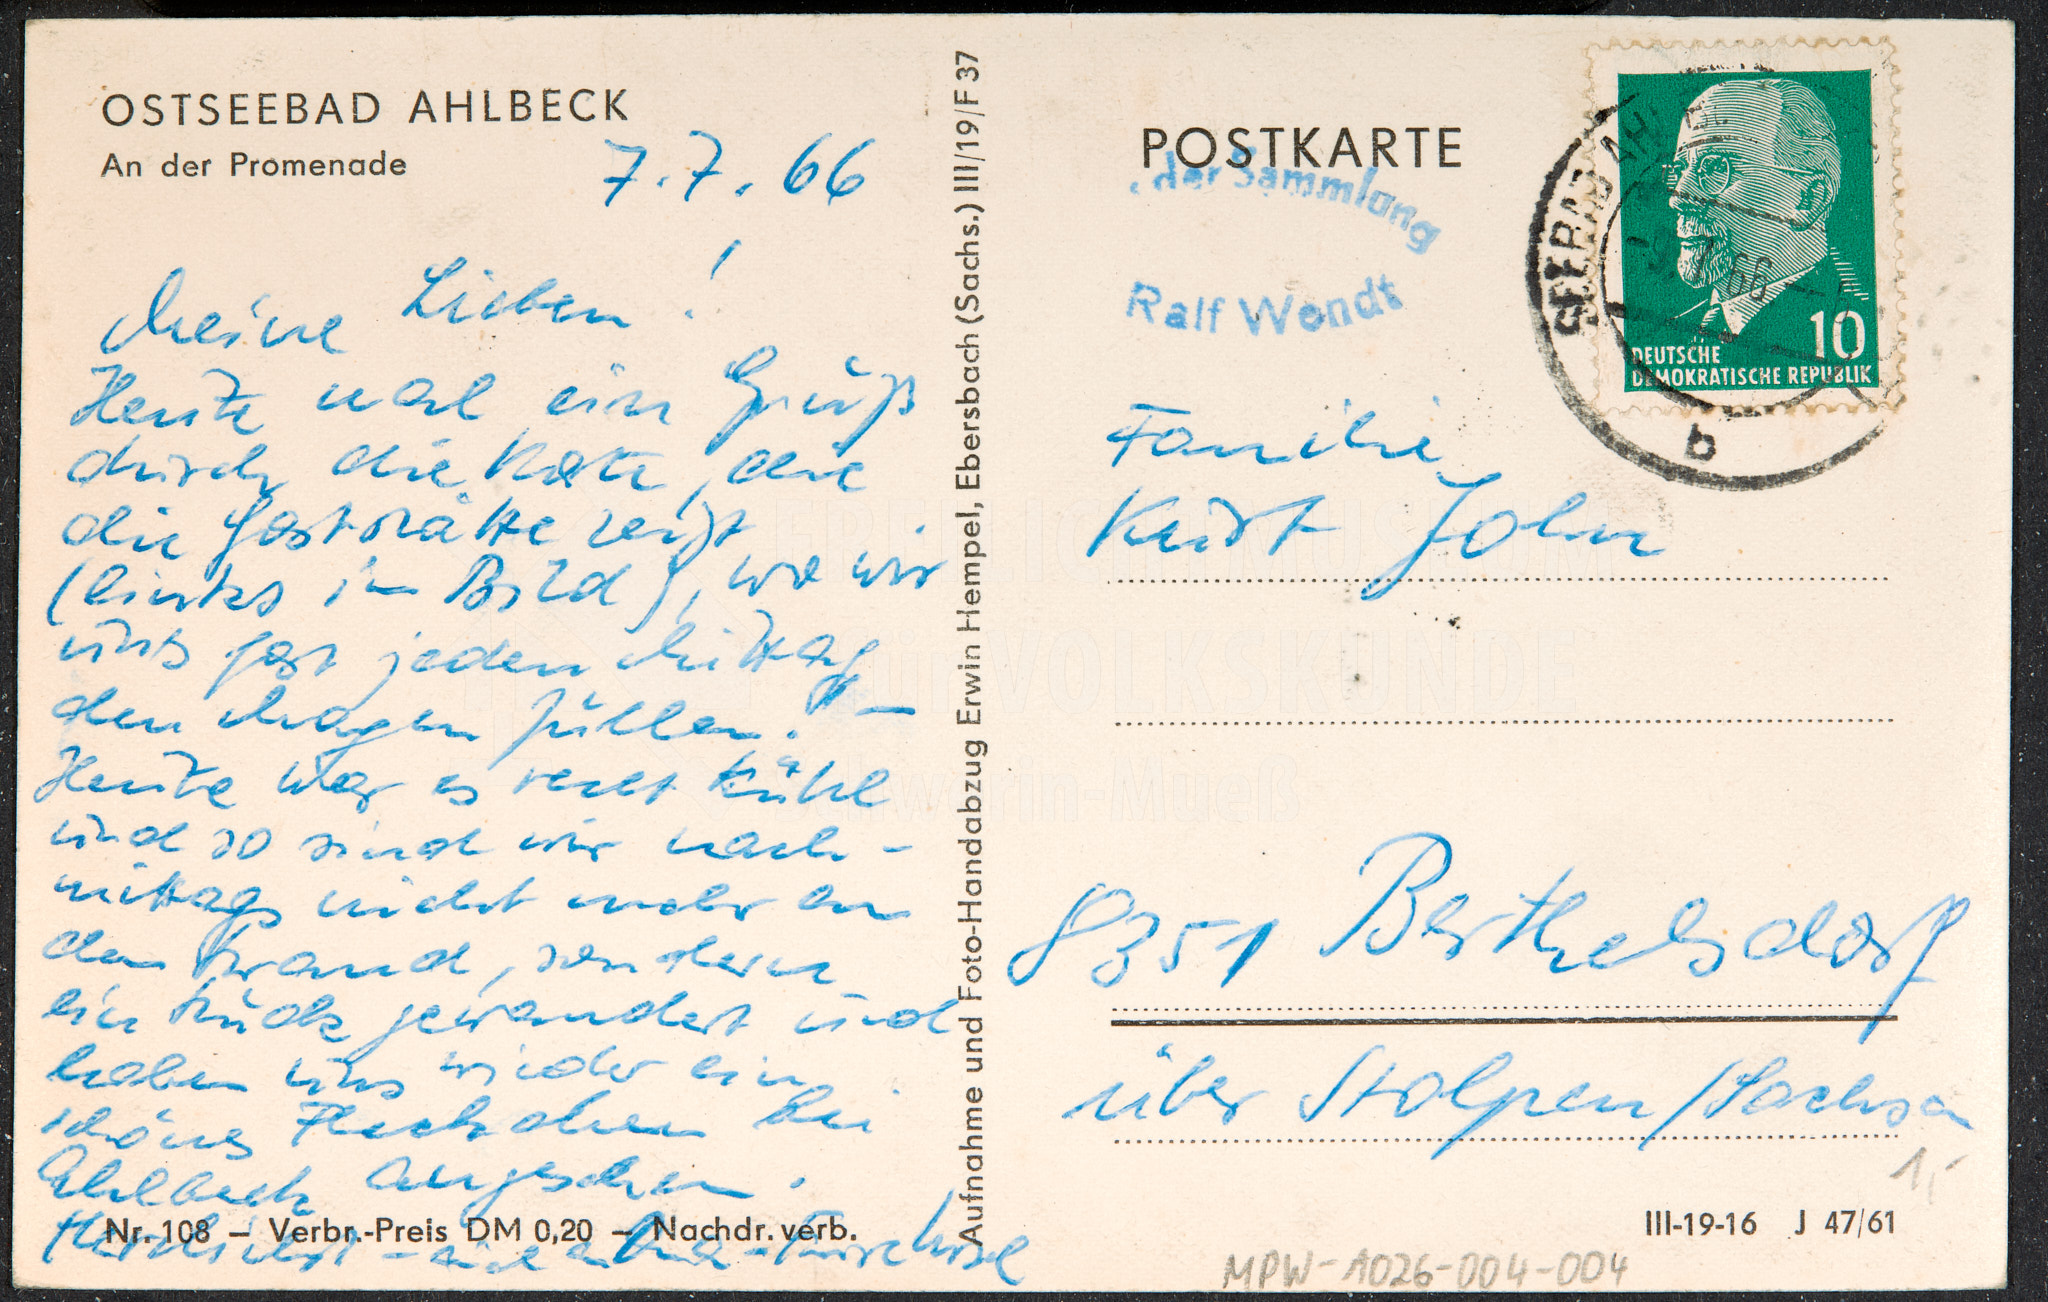 OSTSEEBAD AHLBECK
An der Promenade
7.7.66
Meine Lieben!
Heute mal ein Gruß
durch die Karte, die
die Gaststätte zeigt
(links im Bild), wo wir
uns fast jeden Mittag
den Magen füllen. –
Heute war es recht kühl
und so sind wir nach-
mittags nicht mehr an
den Strand, sondern
ein Stück gewandert und
haben uns wieder ein
schönes Fleckchen bei
Ahlbeck angesehen.
Herzlichst
Nr. 108 – Verbr.-Preis DM 0,20 – Nachdr. verb.
Aufnahme und Foto-Handabzug Erwin Hempel, Ebersbach (Sachs.) III/19/F 37
POSTKARTE
der Sammlung
Ralf Wendt
SEEBAD AHLBECK
7.66
b
10
DEUTSCHE
DEMOKRATISCHE REPUBLIK
Familie
Kurt John
8351 Berthelsdorf
über Stolpen/Sachsen
1,
III-19-16 J 47/61
MPW-A026-004-004
FREILICHTMUSEUM
für VOLKSKUNDE
Schwerin-Mueß